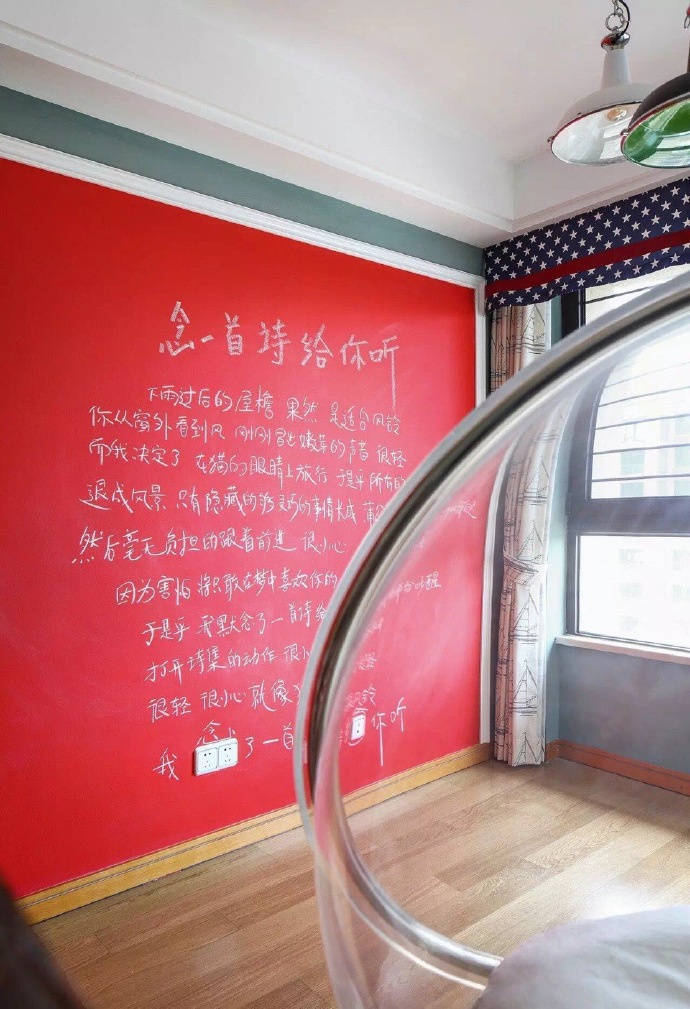 念一首诗给你听
下雨过后的屋檐 果然 是适合风铃
你从窗外看到风 刚刚 的声音 很轻
而我决定了 在猫的眼睛上旅行 于是乎 所有的
退成风景 只有隐藏的 的事情长成 蒲
然后毫无负担的跟着前进 很小心
因为害怕 将只敢在梦中喜欢你的 吵醒
于是乎 我默念了一首诗给
打开诗集的动作 很小
很轻 很小心 就像 风铃
我 念 了一首 你听